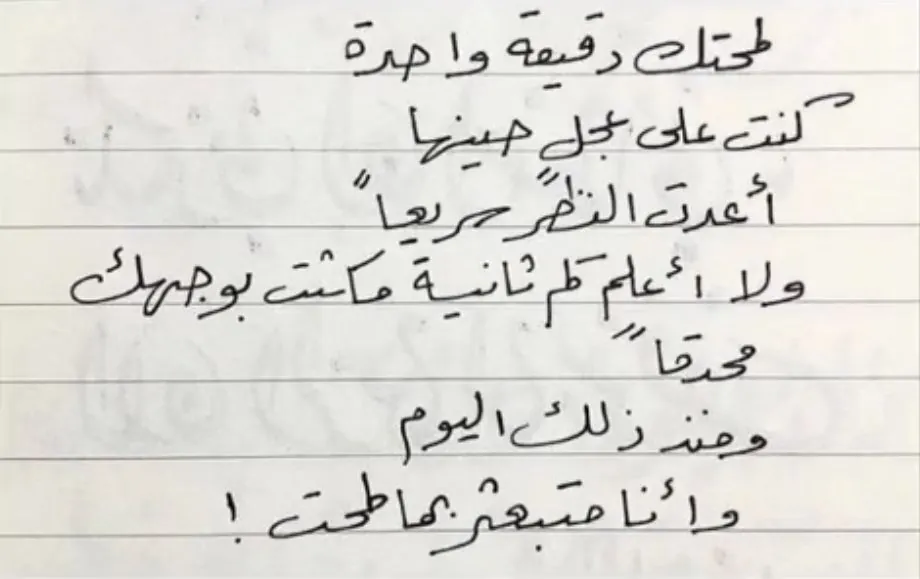 لمحتك دقيقة واحدة
كنت على عجل حينها
أعدت النظر سريعاً
ولا أعلم كم ثانية مكثت بوجهك
محدقاً
ومنذ ذلك اليوم
وأنا متبعثر بما لمحت !